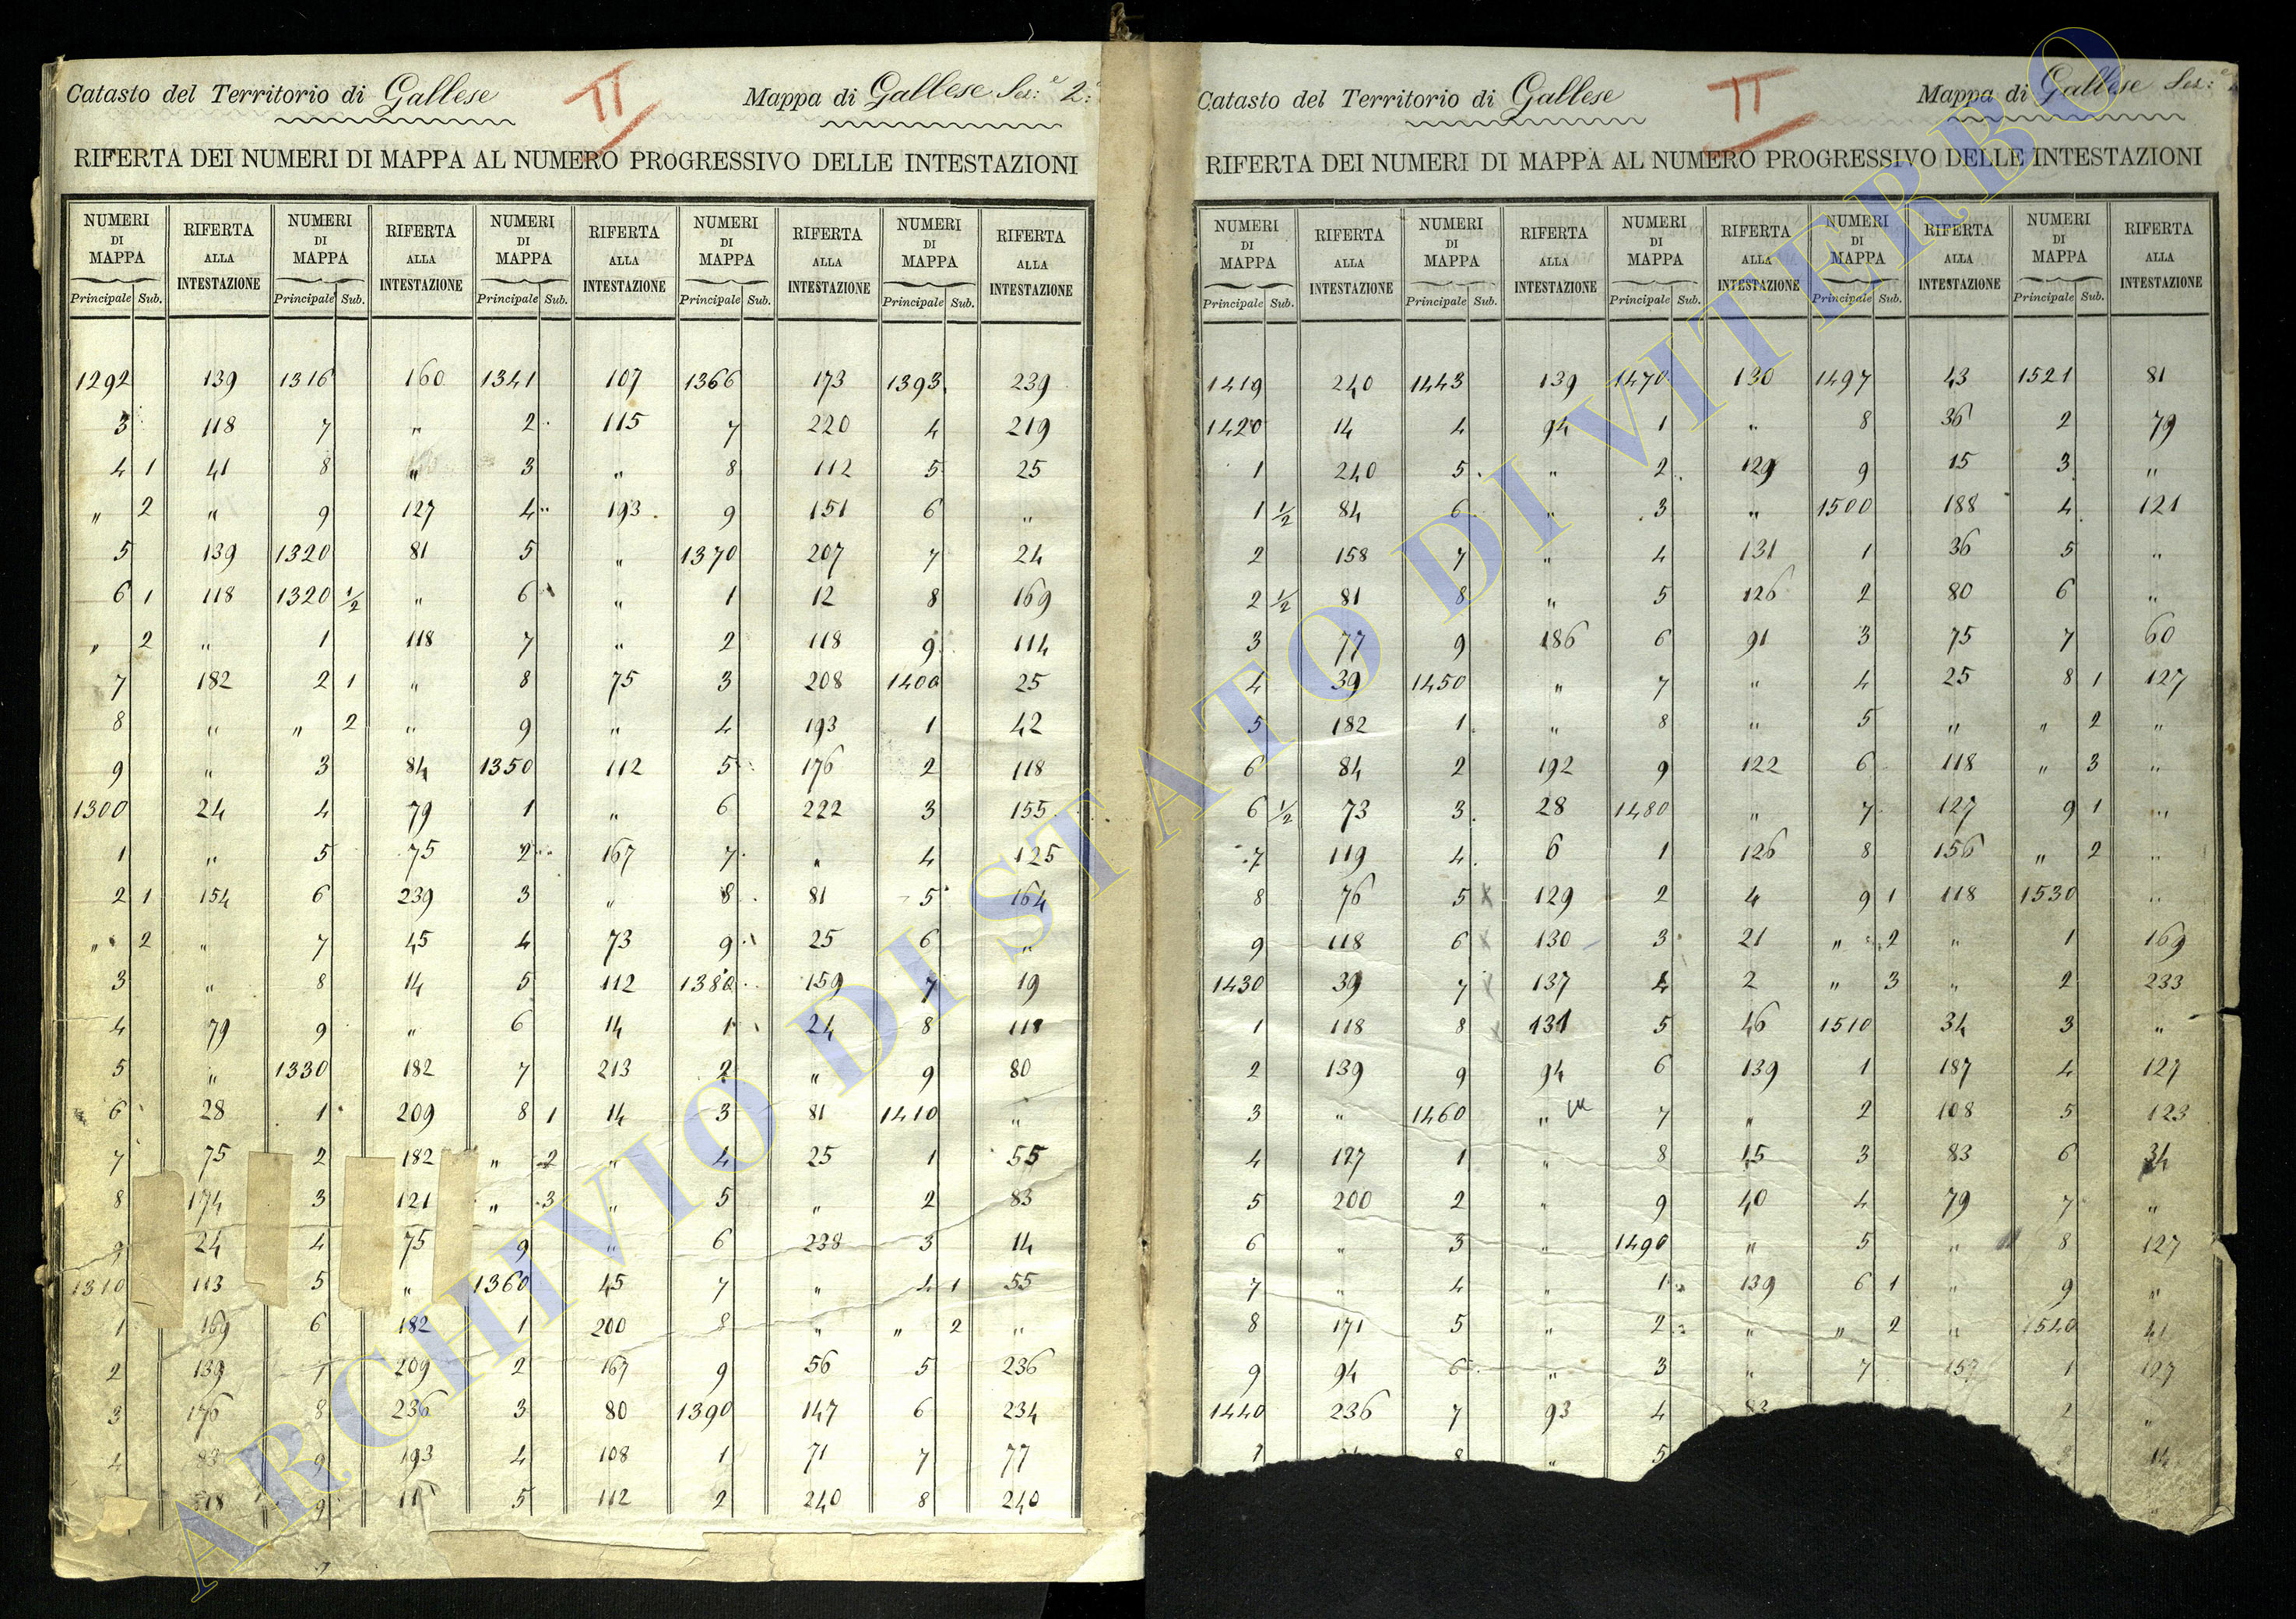 Catasto del Territorio di Gallese II Mappa di Gallese Sez: e 2:
RIFERTA DEI NUMERI DI MAPPA AL NUMERO PROGRESSIVO DELLE INTESTAZIONI
NUMERI DI MAPPA RIFERTA ALLA INTESTAZIONE NUMERI DI MAPPA RIFERTA ALLA INTESTAZIONE NUMERI DI MAPPA RIFERTA ALLA INTESTAZIONE NUMERI DI MAPPA RIFERTA ALLA INTESTAZIONE NUMERI DI MAPPA RIFERTA ALLA INTESTAZIONE
Principale Sub. Principale Sub. Principale Sub. Principale Sub. Principale Sub.
1292 139 1316 160 1341 107 1366 173 1393 239
3 118 7 " 2 115 7 220 4 219
4 1 41 8 " 3 " 8 112 5 25
" 2 " 9 127 4 193 9 151 6 "
5 139 1320 81 5 " 1370 207 7 24
6 1 118 1320 1/2 " 6 " 1 12 8 169
" 2 " 1 118 7 " 2 118 9 114
7 182 2 1 " 8 75 3 208 1400 25
8 " " 2 " 9 " 4 193 1 42
9 " 3 84 1350 112 5 176 2 118
1300 24 4 79 1 " 6 222 3 155
1 " 5 75 2 167 7 " 4 125
2 1 154 6 239 3 " 8 81 5 164
" 2 " 7 45 4 73 9 25 6 "
3 " 8 14 5 112 1380 159 7 19
4 79 9 " 6 14 1 24 8 118
5 " 1330 182 7 213 2 " 9 80
6 28 1 209 8 1 14 3 81 1410 "
7 75 2 182 " 2 " 4 25 1 55
8 174 3 121 " 3 " 5 " 2 83
9 24 4 75 9 " 6 238 3 14
1310 113 5 " 1360 45 7 " 4 1 55
1 169 6 182 1 200 8 " " 2 "
2 139 7 209 2 167 9 56 5 236
3 176 8 236 3 80 1390 147 6 234
4 83 9 193 4 108 1 71 7 77
118 9 5 112 2 240 8 240
Catasto del Territorio di Gallese II Mappa di Gallese Sez: e
RIFERTA DEI NUMERI DI MAPPA AL NUMERO PROGRESSIVO DELLE INTESTAZIONI
NUMERI DI MAPPA RIFERTA ALLA INTESTAZIONE NUMERI DI MAPPA RIFERTA ALLA INTESTAZIONE NUMERI DI MAPPA RIFERTA ALLA INTESTAZIONE NUMERI DI MAPPA RIFERTA ALLA INTESTAZIONE NUMERI DI MAPPA RIFERTA ALLA INTESTAZIONE
Principale Sub. Principale Sub. Principale Sub. Principale Sub. Principale Sub.
1419 240 1443 139 1470 130 1497 43 1521 81
1420 14 4 94 1 " 8 36 2 79
1 240 5 " 2 129 9 15 3 "
1 1/2 84 6 " 3 " 1500 188 4 121
2 158 7 " 4 131 1 36 5 "
2 1/2 81 8 " 5 126 2 80 6 "
3 77 9 186 6 91 3 75 7 60
4 39 1450 " 7 " 4 25 8 1 127
5 182 1 " 8 " 5 " " 2 "
6 84 2 192 9 122 6 118 " 3 "
6 1/2 73 3 28 1480 " 7 127 9 1 "
7 119 4 6 1 126 8 156 " 2 "
8 76 5 x 129 2 4 9 1 118 1530 "
9 118 6 x 130 3 21 " 2 " 1 169
1430 39 7 x 137 4 2 " 3 " 2 233
1 118 8 x 131 5 46 1510 34 3 "
2 139 9 94 6 139 1 187 4 127
3 " 1460 " 7 " 2 108 5 123
4 127 1 " 8 45 3 83 6 34
5 200 2 " 9 40 4 79 7 "
6 " 3 " 1490 " 5 " 8 127
7 " 4 " 1 139 6 1 " 9 "
8 171 5 " 2 " " 2 " 1540 41
9 94 6 " 3 " 7 157 1 127
1440 236 7 93 4 83 2 "
1 8 " 5 14
ARCHIVIO DI STATO DI VITERBO